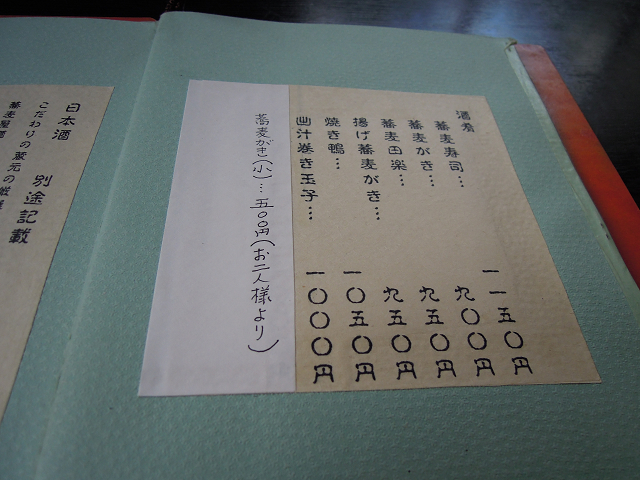 酒肴
蕎麦寿司… 一一五〇円
蕎麦がき… 九〇〇円
蕎麦田楽… 九五〇円
揚げ蕎麦がき… 九五〇円
焼き鴨… 一〇五〇円
出汁巻き玉子… 一〇〇〇円
蕎麦がき(小)…五〇〇円(お二人様より)
日本酒 別途記載
こだわりの蔵元の厳選
蕎麦屋